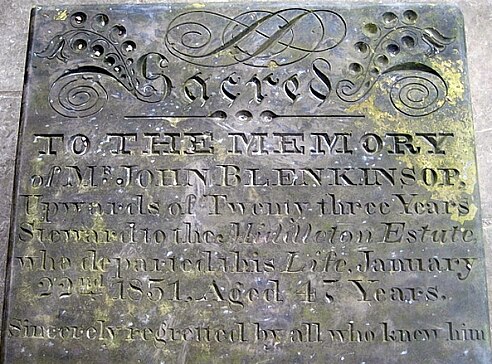 Sacred
TO THE MEMORY
of Mr. JOHN BLENKINSOP,
Upwards of Twenty three Years
Steward to the Middleton Estate,
who departed this Life, January
22nd 1831, Aged 47 Years.
Sincerely regretted by all who knew him